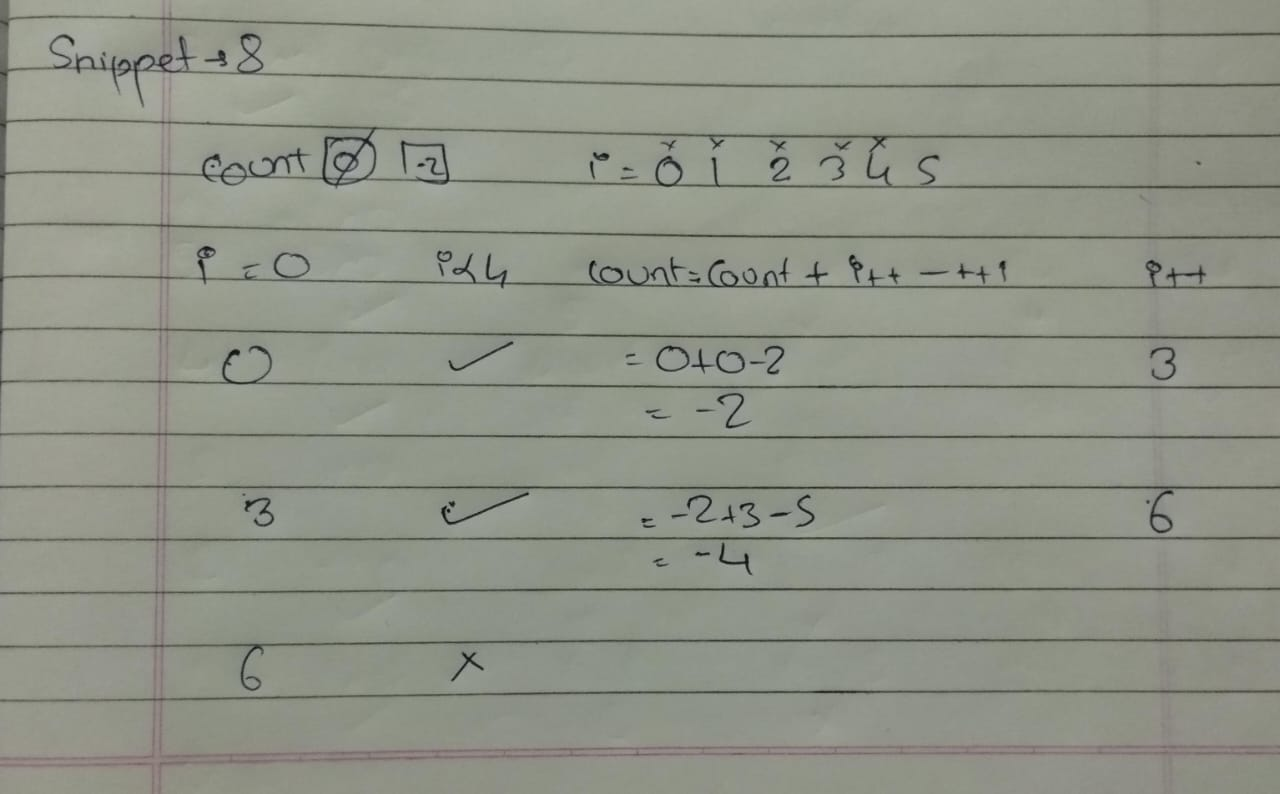 Snippet → 8
count 0 -2 i = 0 1 2 3 4 5
i = 0 i<4 count = count + i++ - ++i i++
0 ✓ = 0+0-2 3
= -2
3 ✓ = -2+3-5 6
= -4
6 ×